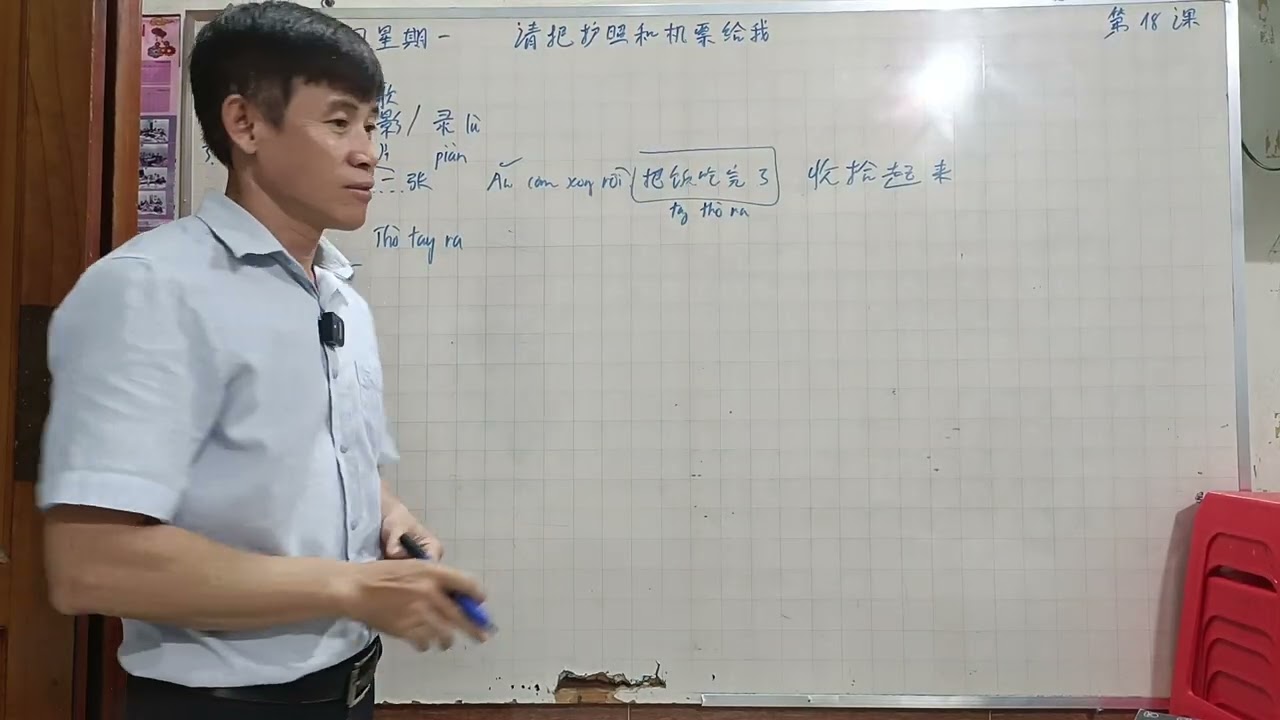 星期一 请把护照和机票给我 第18课
影/录 lù
piàn
张 Ăn cơm xong rồi 把饭吃完了 收拾起来
tay thò ra
Thò tay ra